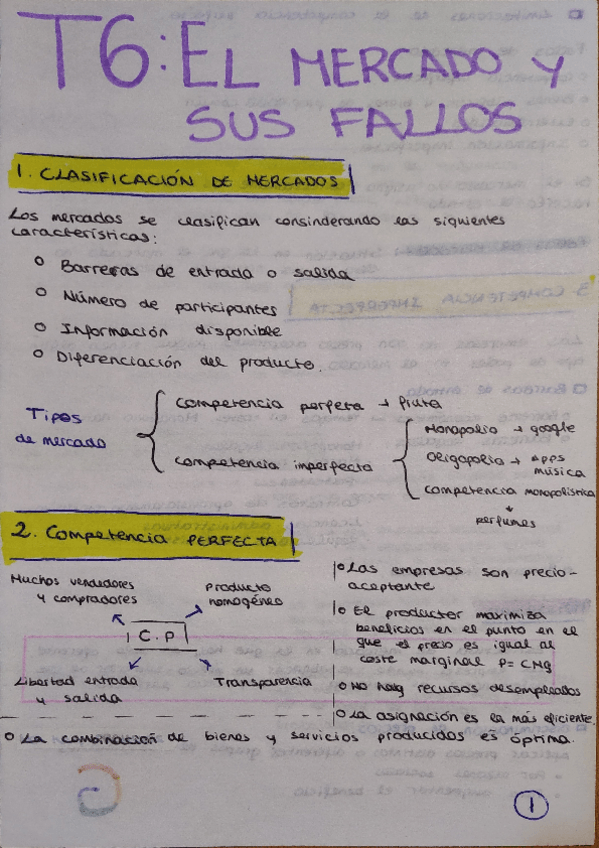 T6: EL MERCADO Y
SUS FALLOS
1. CLASIFICACIÓN DE MERCADOS
Los mercados se clasifican consinderando las siguientes
características:
o Barreras de entrada o salida
o Número de participantes
o Información disponible
o Diferenciación del producto.
Tipos
de mercado
competencia perfecta → fruta
competencia imperfecta
Monopolio → google
Oligopolio → apps
música
competencia monopolística
↓
perfumes
2. Competencia PERFECTA
Muchos vendedores
y compradores
producto
homogéneo
C.P
Libertad entrada
y salida
Transparencia
o Las empresas son precio-
aceptante
o El productor maximiza
beneficios en el punto en el
que el precio es igual al
coste marginal P = CMg
o No hay recursos desempleados
o La asignación es la más eficiente.
o La combinación de bienes y servicios producidos es óptima.
1